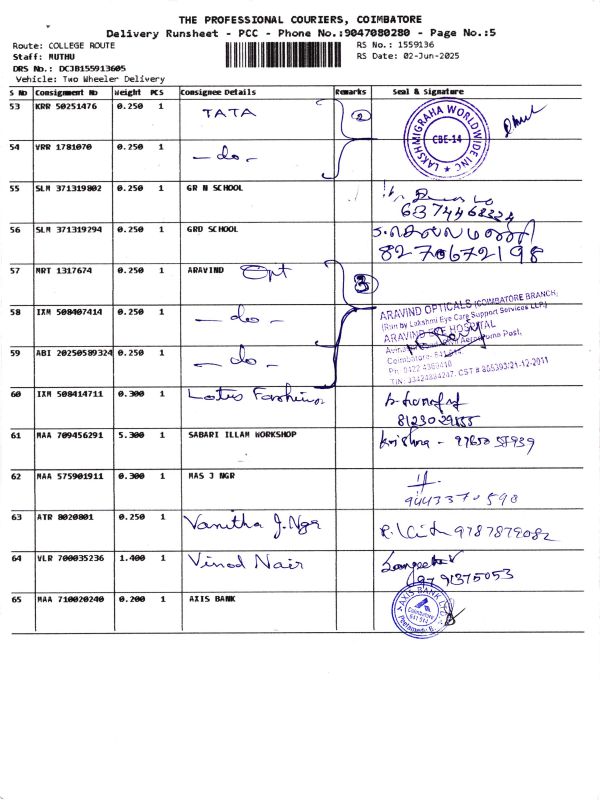 THE PROFESSIONAL COURIERS, COIMBATORE
Delivery Runsheet - PCC - Phone No.:9047080280 - Page No.:5
Route: COLLEGE ROUTE RS No.: 1559136
Staff: MUTHU RS Date: 02-Jun-2025
DRS No.: DCJB155913605
Vehicle: Two Wheeler Delivery
S No Consignment No Weight PCS Consignee Details Remarks Seal & Signature
53 KRR 50251476 0.250 1 TATA 2
LAKSHMIGRAHA WORLDWIDE INC ★ CBE-14
54 VRR 1781070 0.250 1 - do -
55 SLM 371319802 0.250 1 GR N SCHOOL
6374468324
56 SLM 371319294 0.250 1 GRD SCHOOL
8270672198
57 MRT 1317674 0.250 1 ARAVIND Opt 3
58 IXM 508407414 0.250 1 - do -
ARAVIND OPTICALS (COIMBATORE BRANCH)
(Run by Lakshmi Eye Care Support Services LLP)
ARAVIND EYE HOSPITAL
Aerodrome Post,
59 ABI 20250589324 0.250 1 - do -
Coimbatore- 641 014
Ph: 0422 4360410
TIN: 33424884247, CST # 865393/21-12-2011
60 IXM 508414711 0.300 1 Lotus Fashion
8123029155
61 MAA 709456291 5.300 1 SABARI ILLAM WORKSHOP Krishna -
62 MAA 575901911 0.300 1 MAS J NGR
9443370590
63 ATR 8020801 0.250 1 Vanitha J. Ngr 9787879082
64 VLR 700035236 1.400 1 Vinod Nair Sangeetha V
9791375053
65 MAA 710020240 0.200 1 AXIS BANK
AXIS BANK LTD.
Coimbatore
641 014
Peelamedu B.